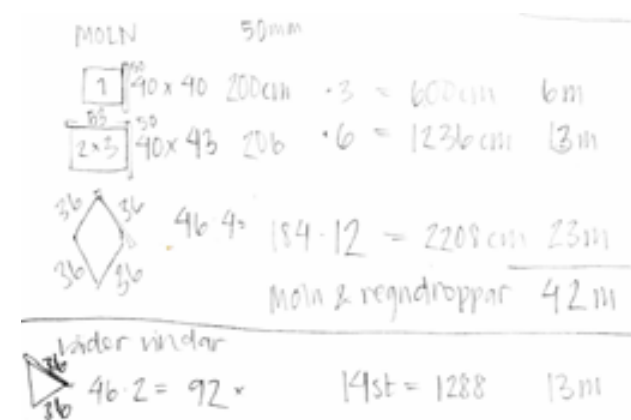 MOLN 50mm
1 50 40 x 40 200cm · 3 = 600cm 6m
53 50
2 x 3 40 x 43 206 · 6 = 1236cm 13m
36 36
46 · 4 = 184 · 12 = 2208cm 23m
36 36
Moln & regndroppar 42m
vindar
36 46 · 2 = 92 × 14st = 1288 13m
36